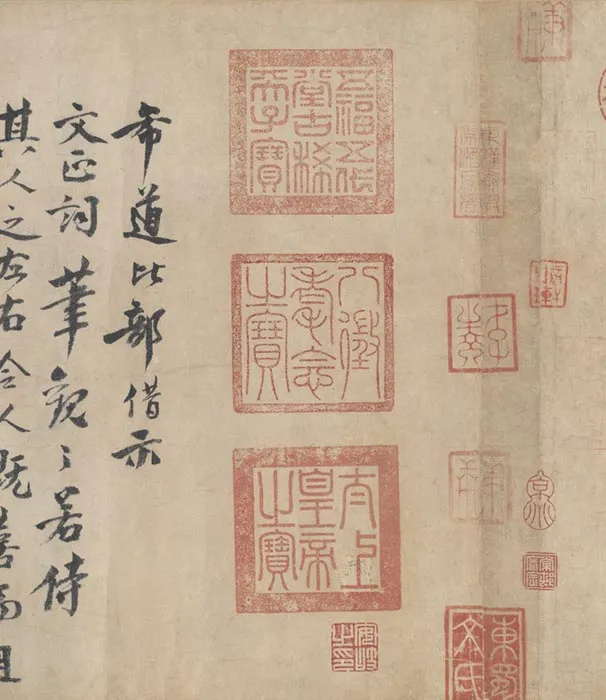 東蜀
文氏
京兆
五福五代
堂古稀
天子寶
八徵
耄念
之寶
太上
皇帝
之寶
安岐
之印
希道比部借示
文正詞筆觀之若侍
其人之左右令人既喜而且